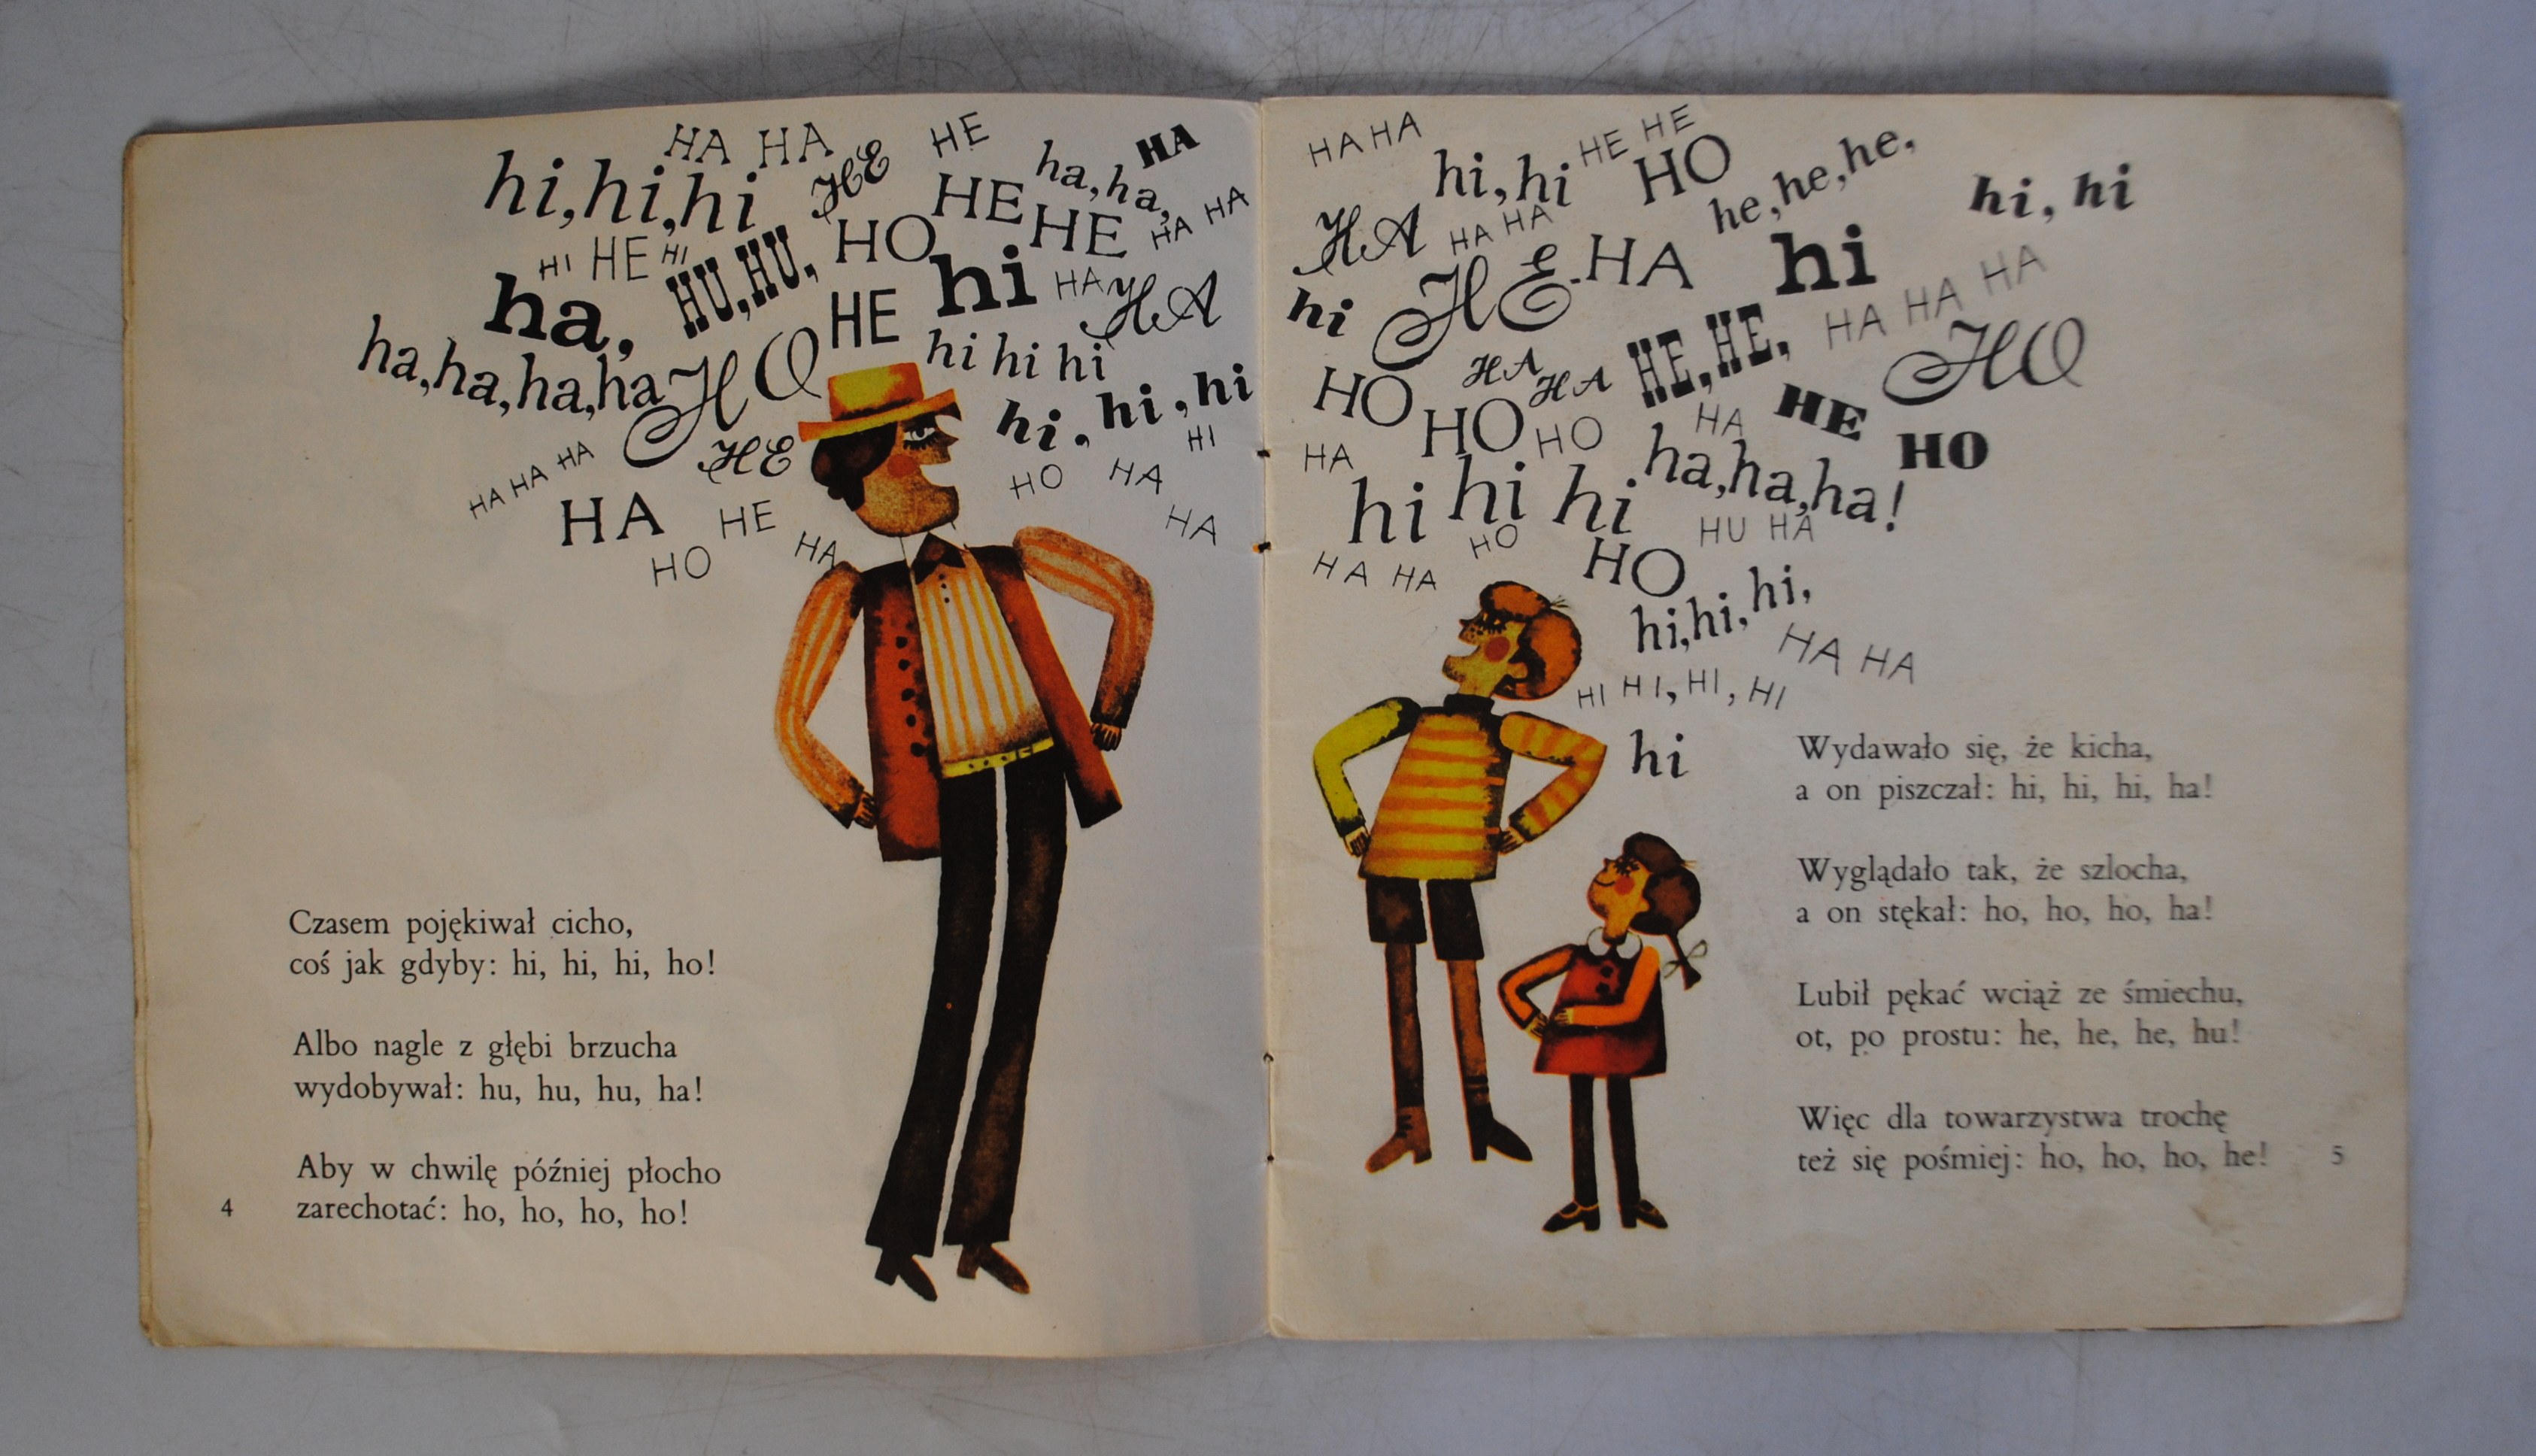 HA HA HE
hi, hi, hi HE ha, ha, HA
HE HE HA HA
HI HE HI HU, HU, HO
ha, HE hi HA HA
ha, ha, ha, ha HO hi hi hi
hi, hi, hi
HA HA HA HE HI
HO HA
HA HE HA
HO HA
Czasem pojękiwał cicho,
coś jak gdyby: hi, hi, hi, ho!
Albo nagle z głębi brzucha
wydobywał: hu, hu, hu, ha!
Aby w chwilę później płocho
zarechotać: ho, ho, ho, ho!
4
HA HA HE HE
hi, hi HO he, he, he,
hi, hi
HA HA HA
hi HE-HA hi
HA HA HA
HO HA HA HE, HE, HO
HO HO HA HE
HA HO
hi hi hi ha, ha, ha!
HO HU HA
HA HA HO
hi, hi, hi,
HA HA
HI HI, HI, HI
hi
Wydawało się, że kicha,
a on piszczał: hi, hi, hi, ha!
Wyglądało tak, że szlocha,
a on stękał: ho, ho, ho, ha!
Lubił pękać wciąż ze śmiechu,
ot, po prostu: he, he, he, hu!
Więc dla towarzystwa trochę
też się pośmiej: ho, ho, ho, he!
5